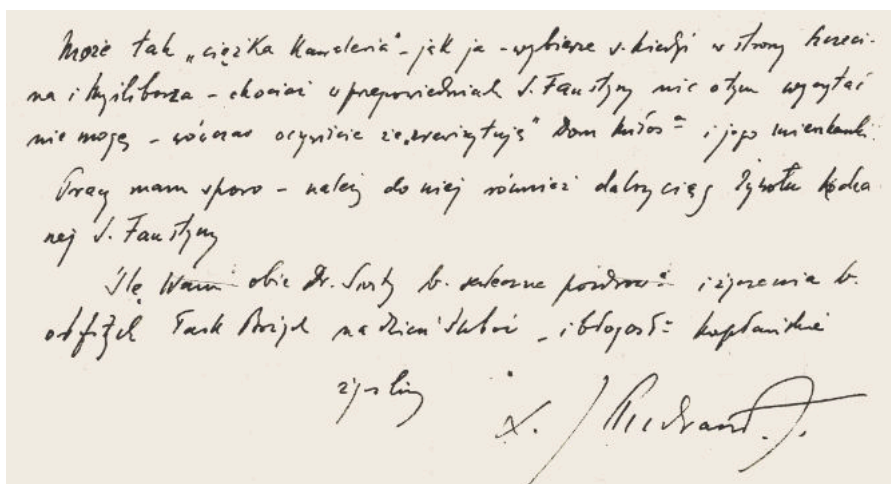 Może tak „ciężka Kawaleria" – jak ja – wybierze s. kiedyś w strony Szczeci-
na i Myśliborza – chociaż w przepowiedniach S. Faustyny nic o tym wyczytać
nie mogę – wówczas oczywiście że „zrewizytuję" Dom Miłos= i jego mieszkanki.
Pracy mam sporo – należy do niej również dalszy ciąg Żywotu kocha
nej S. Faustyny
Ślę Wam obie Dr. Siostry b. serdeczne pozdrow= i życzenia b.
obfitych Łask Bożych na dzień ślubów – i błogosł= kapłańskie
życzliwy
X. J